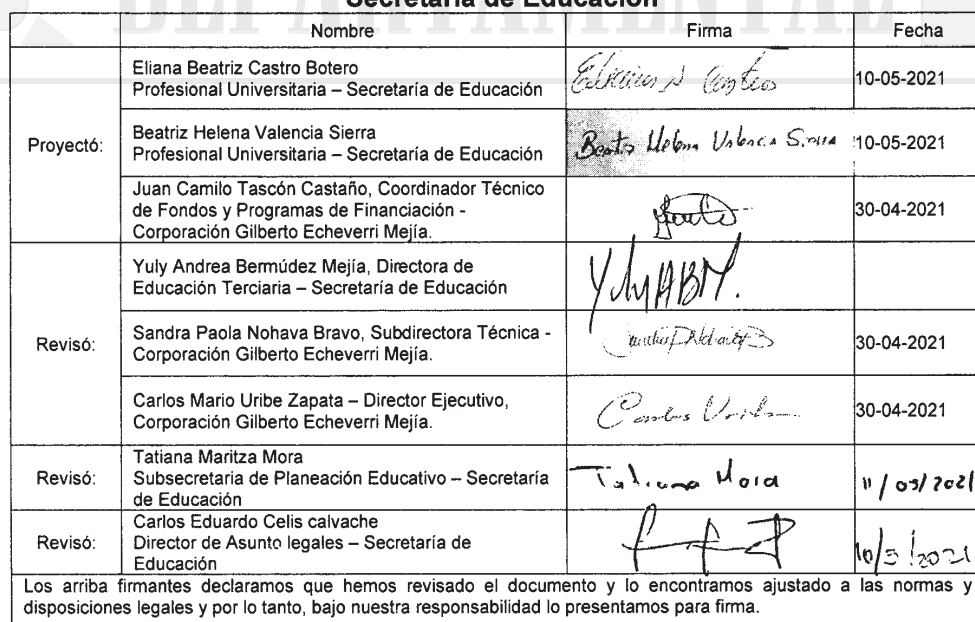 Secretaría de Educación
DEPARTAMENTAL
Nombre Firma Fecha
Proyectó:
Eliana Beatriz Castro Botero
Profesional Universitaria – Secretaría de Educación
10-05-2021
Beatriz Helena Valencia Sierra
Profesional Universitaria – Secretaría de Educación
Beatriz Helena Valencia Sierra
10-05-2021
Juan Camilo Tascón Castaño, Coordinador Técnico
de Fondos y Programas de Financiación -
Corporación Gilberto Echeverri Mejía.
30-04-2021
Revisó:
Yuly Andrea Bermúdez Mejía, Directora de
Educación Terciaria – Secretaría de Educación
YulyABM.
Sandra Paola Nohava Bravo, Subdirectora Técnica -
Corporación Gilberto Echeverri Mejía.
30-04-2021
Carlos Mario Uribe Zapata – Director Ejecutivo,
Corporación Gilberto Echeverri Mejía.
Carlos
30-04-2021
Revisó:
Tatiana Maritza Mora
Subsecretaria de Planeación Educativo – Secretaría
de Educación
Tatiana Mora
11/05/2021
Revisó:
Carlos Eduardo Celis calvache
Director de Asunto legales – Secretaría de
Educación
10/5/2021
Los arriba firmantes declaramos que hemos revisado el documento y lo encontramos ajustado a las normas y
disposiciones legales y por lo tanto, bajo nuestra responsabilidad lo presentamos para firma.